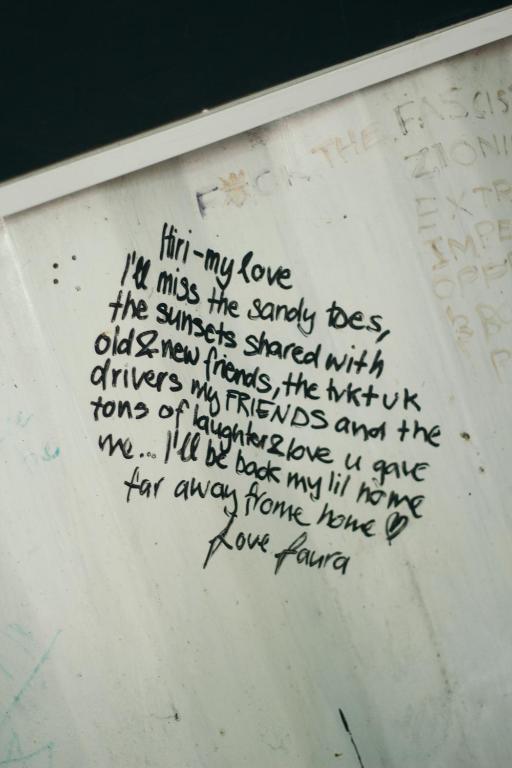 F*CK THE FASCIST
ZIONI
EXTR
IMPE
OPP
Hiri - my love
I'll miss the sandy toes,
the sunsets shared with
old & new friends, the tvktuk
drivers my FRIENDS and the
tons of laughter & love u gave
me... I'll be back my lil home
far away frome home ♡
Love Laura